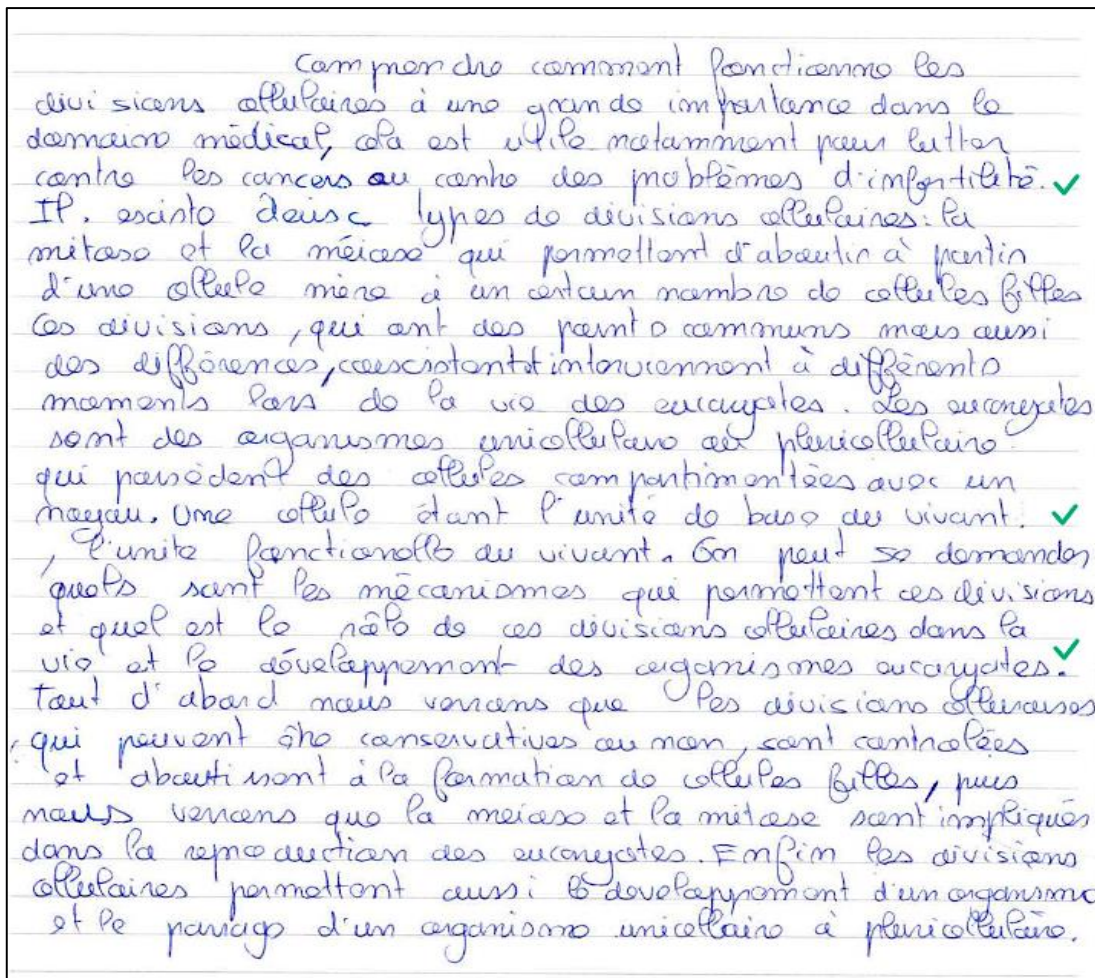 Comprendre comment fonctionne les
divisions cellulaires à une grande importance dans le
domaine médical, cela est utile notamment pour lutter
contre les cancers ou contre des problèmes d'infertilité.
Il existe deux types de divisions cellulaires : la
mitose et la méiose qui permettent d'aboutir à partir
d'une cellule mère à un certain nombre de cellules filles
Ces divisions, qui ont des points communs mais aussi
des différences, coexistent et interviennent à différents
moments lors de la vie des eucaryotes. Les eucaryotes
sont des organismes unicellulaire ou pluricellulaire
qui possèdent des cellules compartimentées avec un
noyau. Une cellule étant l'unité de base du vivant.
, l'unité fonctionelle du vivant. On peut se demander
quels sont les mécanismes qui permettent ces divisions
et quel est le rôle de ces divisions cellulaires dans la
vie et le développement des organismes eucaryotes.
Tout d'abord nous verrons que les divisions cellulaires
, qui peuvent être conservatives ou non, sont contrôlées
et aboutissent à la formation de cellules filles, puis
nous verrons que la méiose et la mitose sont impliqués
dans la reproduction des eucaryotes. Enfin les divisions
cellulaires permettent aussi le développement d'un organisme
et le passage d'un organisme unicellaire à pluricellulaire.